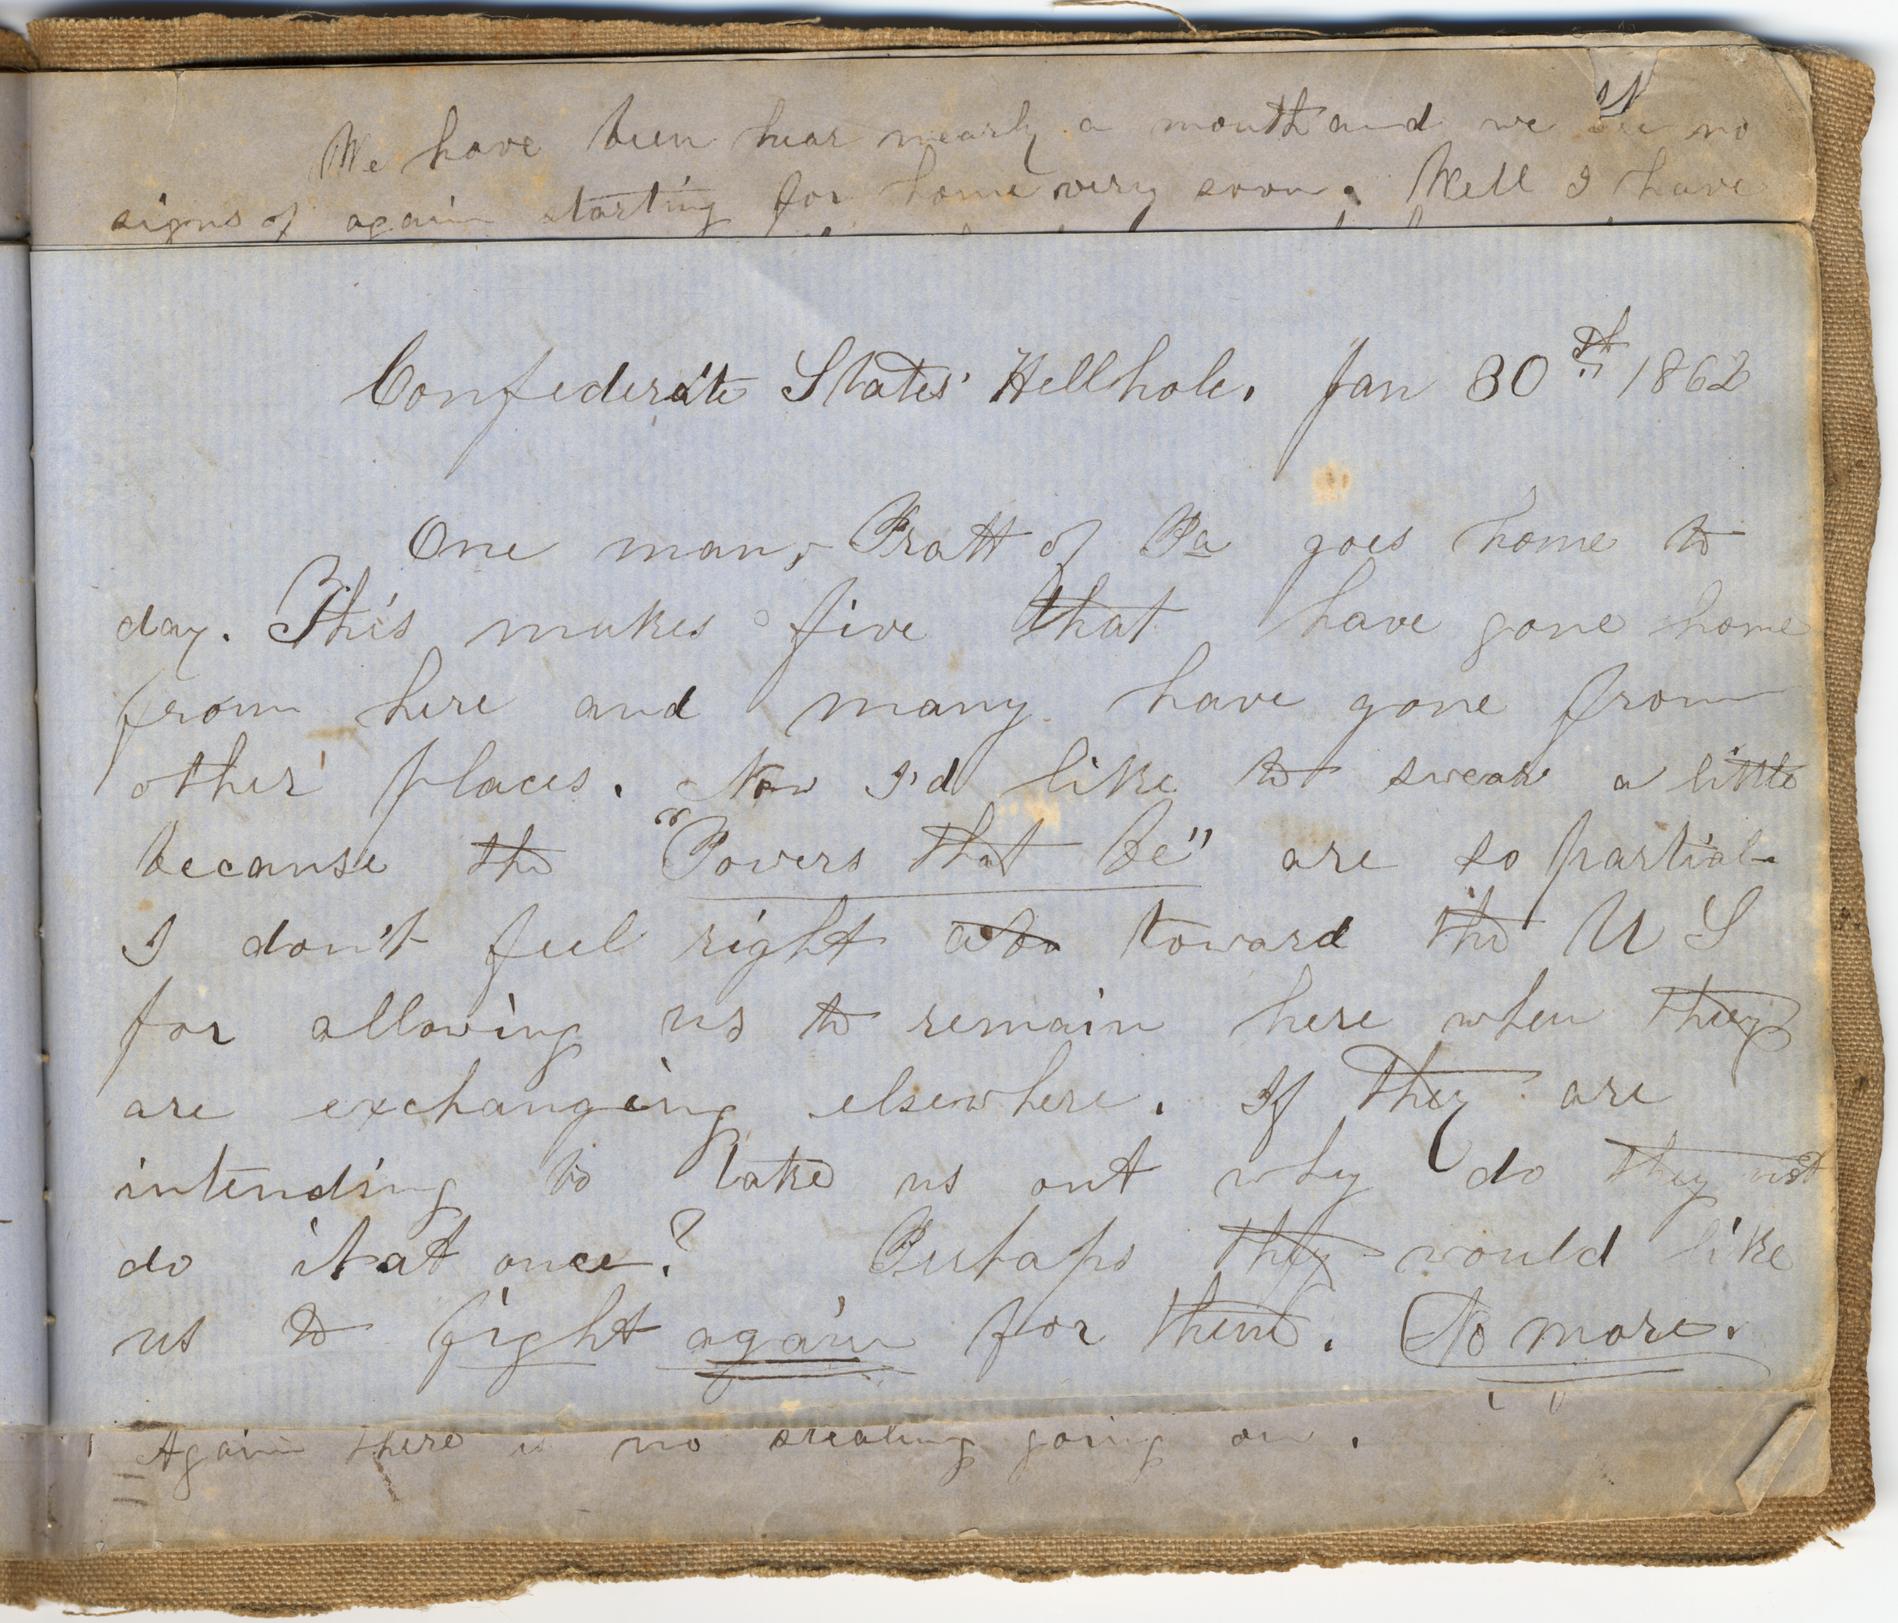 We have been hear nearly a month and we see no
signs of again starting for home very soon. Well I have
Confederate States' Hellhole. Jan 30th 1862
One man, Pratt of Pa goes home to
day. This makes five that have gone home
from here and many have gone from
other places. Now I'd like to swear a little
because the "Powers that be" are so partial
I don't feel right toward the U S
for allowing us to remain here when they
are exchanging elsewhere. If they are
intending to take us out why do they not
do it at once? Perhaps they would like
us to fight again for them. No more.
Again there is no stealing going on.